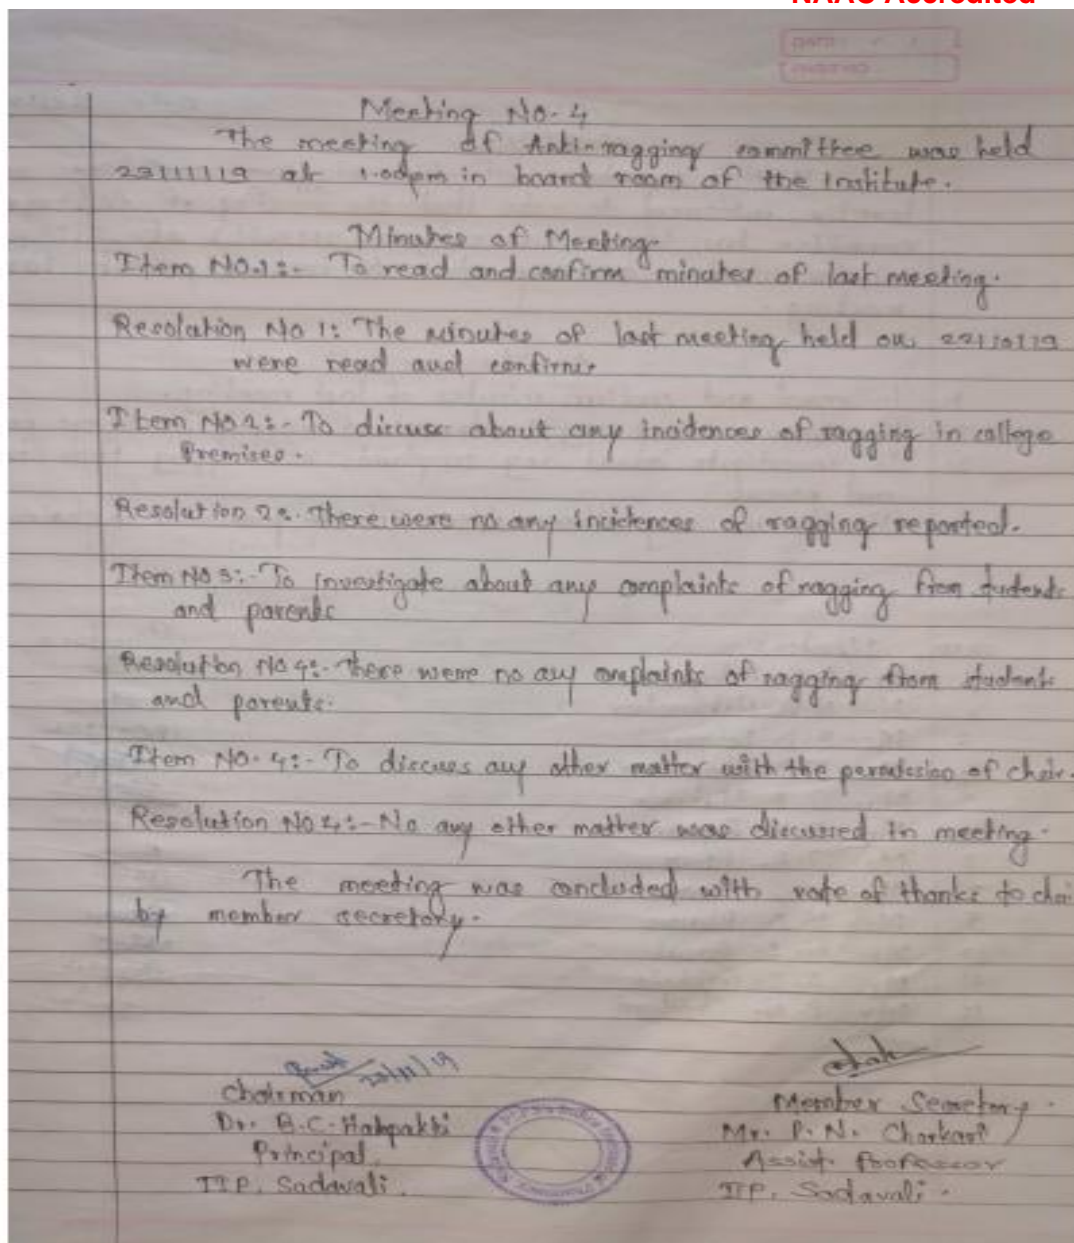 NAAC Accredited
Meeting No. 4
The meeting of Anti-ragging committee was held
at 1.00pm in board room of the Institute.
Minutes of Meeting
Item No.1:- To read and confirm minutes of last meeting.
Resolution No 1: The minutes of last meeting held on
were read and confirm.
Item No 2:- To discuss about any incidences of ragging in college
Premises.
Resolution 2:- There were no any incidences of ragging reported.
Item No 3:- To investigate about any complaints of ragging from students
and parents
Resolution No :- There were no any complaints of ragging from students
and parents.
Item No. 4:- To discuss any other matter with the permission of chair.
Resolution No 4:- No any other matter was discussed in meeting.
The meeting was concluded with vote of thanks to chai
by member secretory.
Chairman
Member Secretory.
Dr.
Mr. P. N.
Principal
Assist. Professor
Sadavali.
Sadavali.